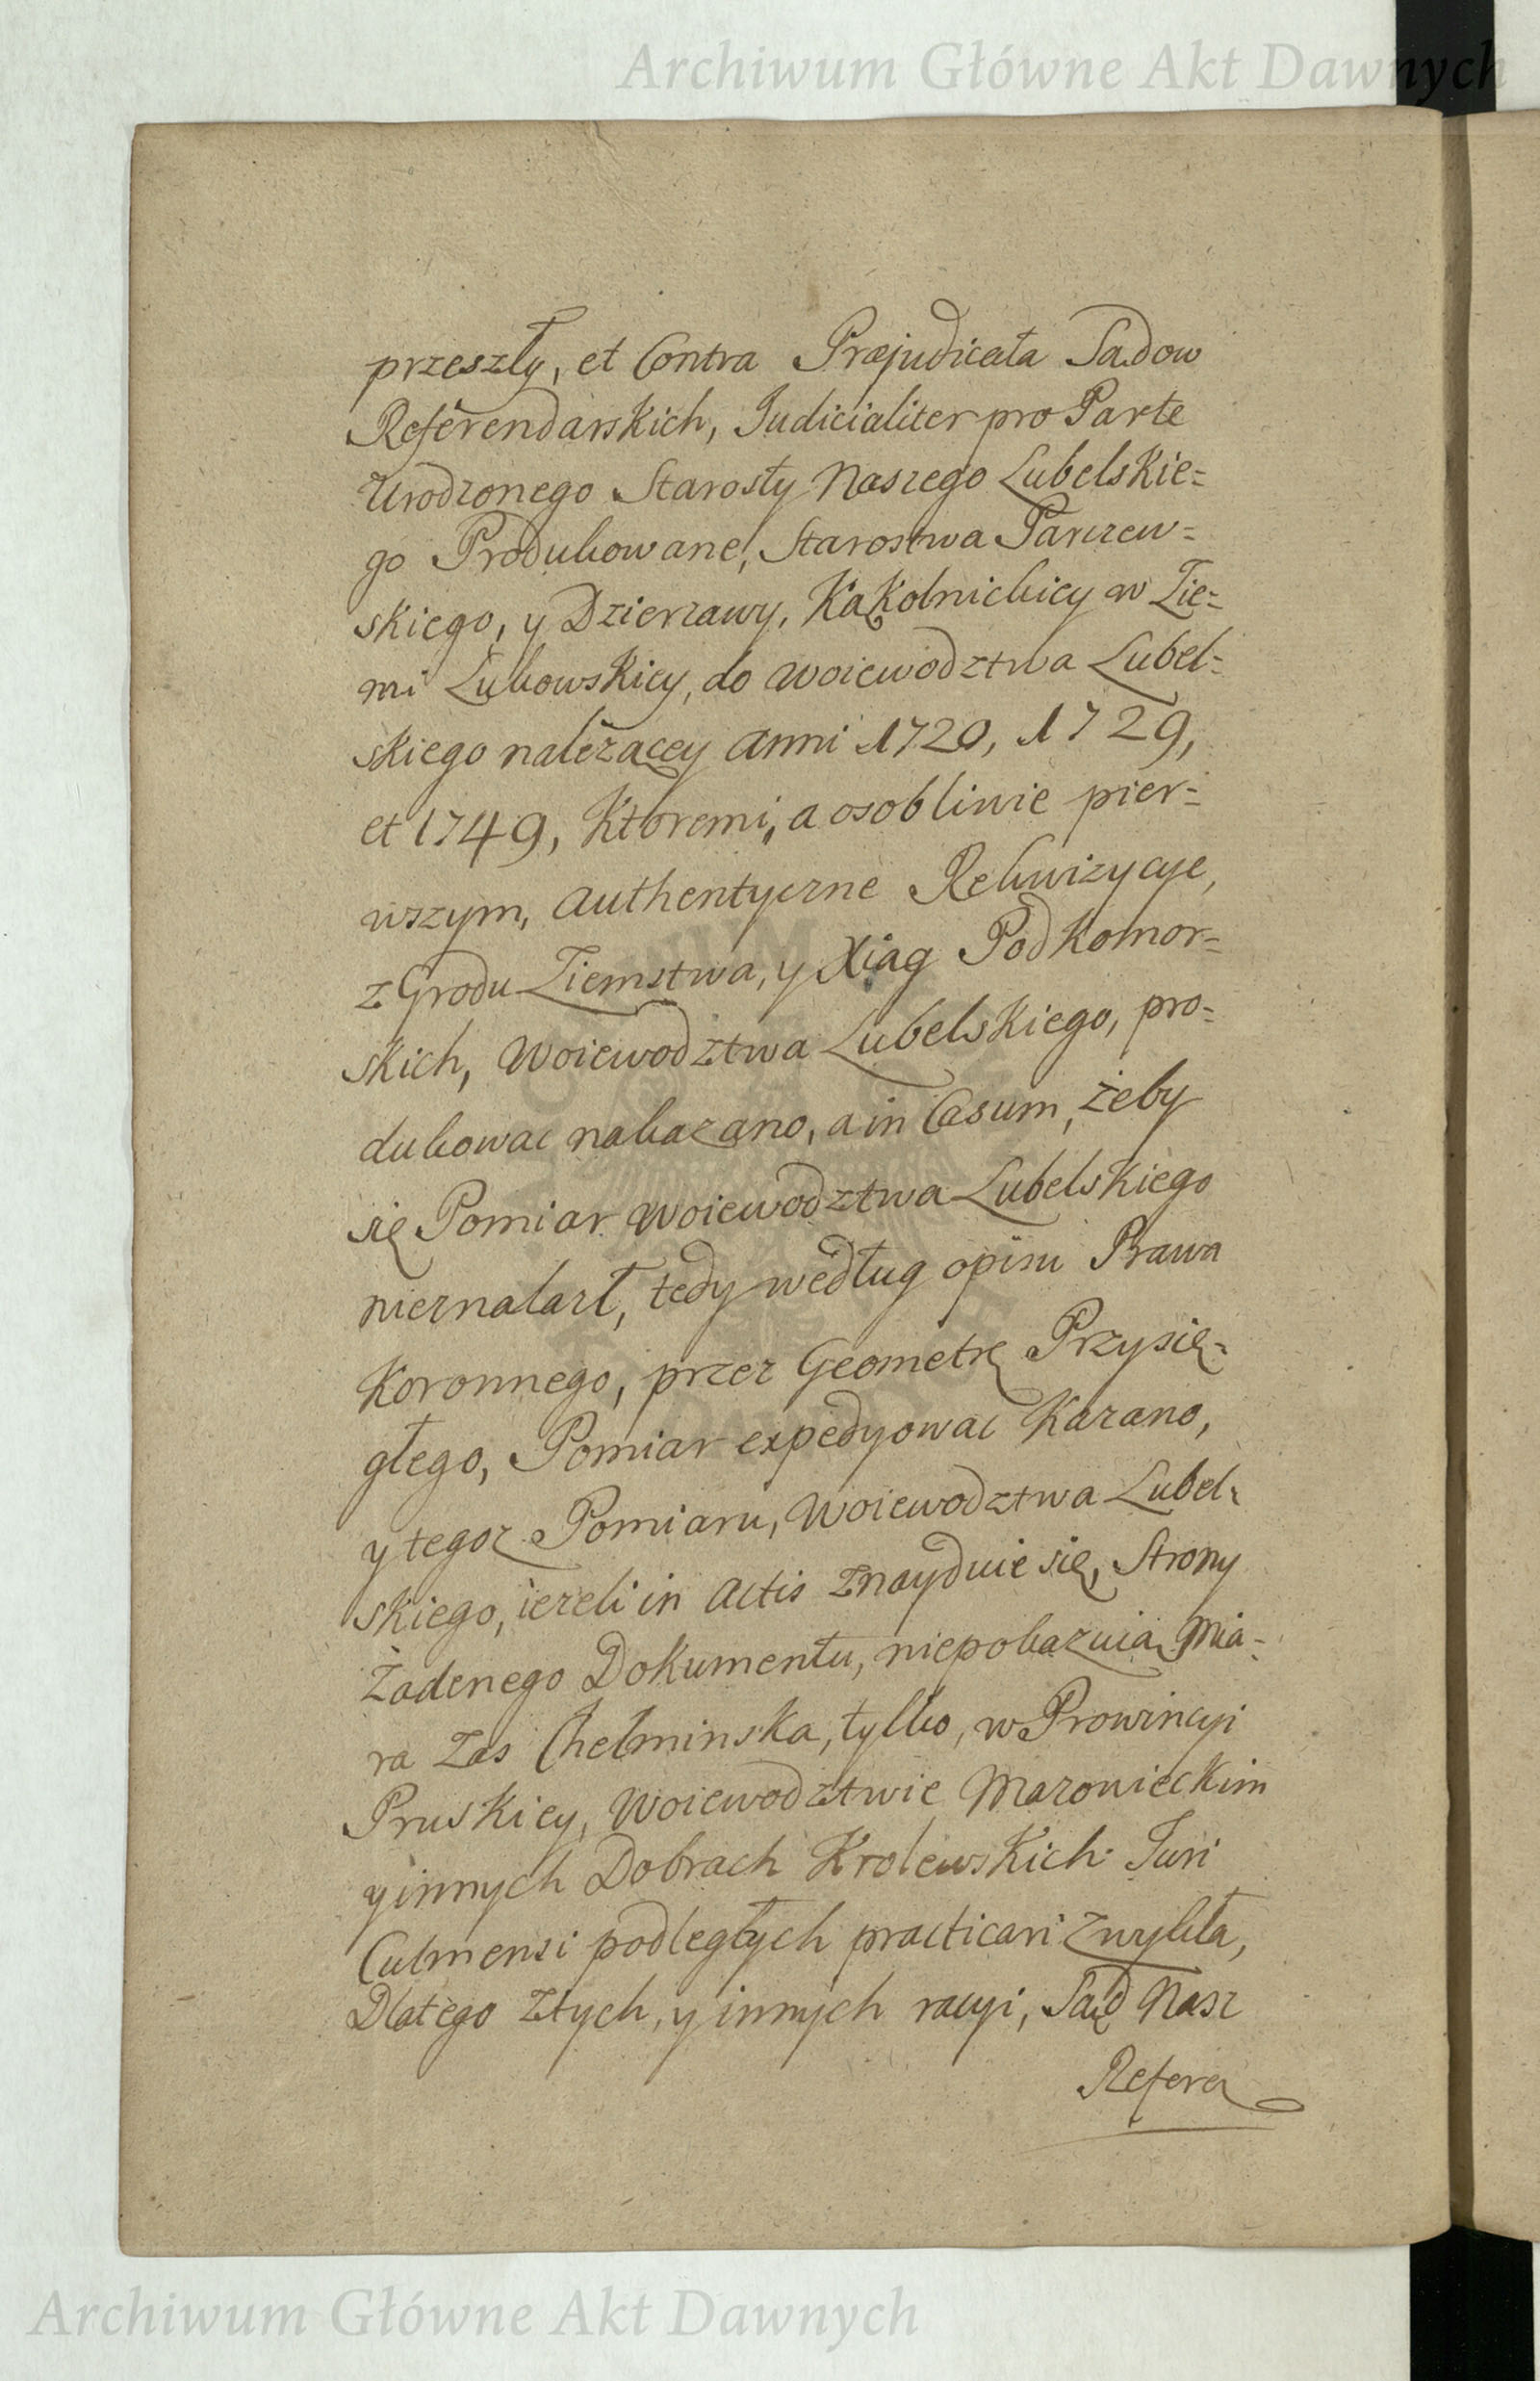 Archiwum Główne Akt Dawnych
przeszły, et Contra Præjudicata Sadow
Referendarskich, Judicialiter pro Parte
Urodzonego Starosty Naszego Lubelskie=
go Produkowane, Starostwa Parczew=
skiego, y Dzierzawy, Kąkolnickiey w Zie=
mi Łukowskiey, do Woiewodztwa Lubel=
skiego należącey Anni 1720, 1729,
et 1749, Ktoremi, a osobliwie pier=
wszym, Authentyczne Rekwizycye,
z Grodu Ziemstwa, y Xiąg Podkomor=
skich, Woiewodztwa Lubelskiego, pro=
dukowac nakazano, a in Casum, żeby
się Pomiar Woiewodztwa Lubelskiego
nieznalazł, tedy według opisu Prawa
Koronnego, przez Geometrę Przysię=
głego, Pomiar expedyowac Kazano,
y tegoz Pomiaru, Woiewodztwa Lubel=
skiego, iezeli in Actis Znayduie się, Strony
Żadenego Dokumentu, niepokazuią Mia=
ra Zas Chełminska, tylko, w Prowincyi
Pruskiey, Woiewodztwie Mazowieckim
y innych Dobrach Krolewskich Juri
Culmensi podległych practicari Zwykła,
Dlatego Ztych, y innych racyi, Sąd Nasz
Referen
Archiwum Główne Akt Dawnych